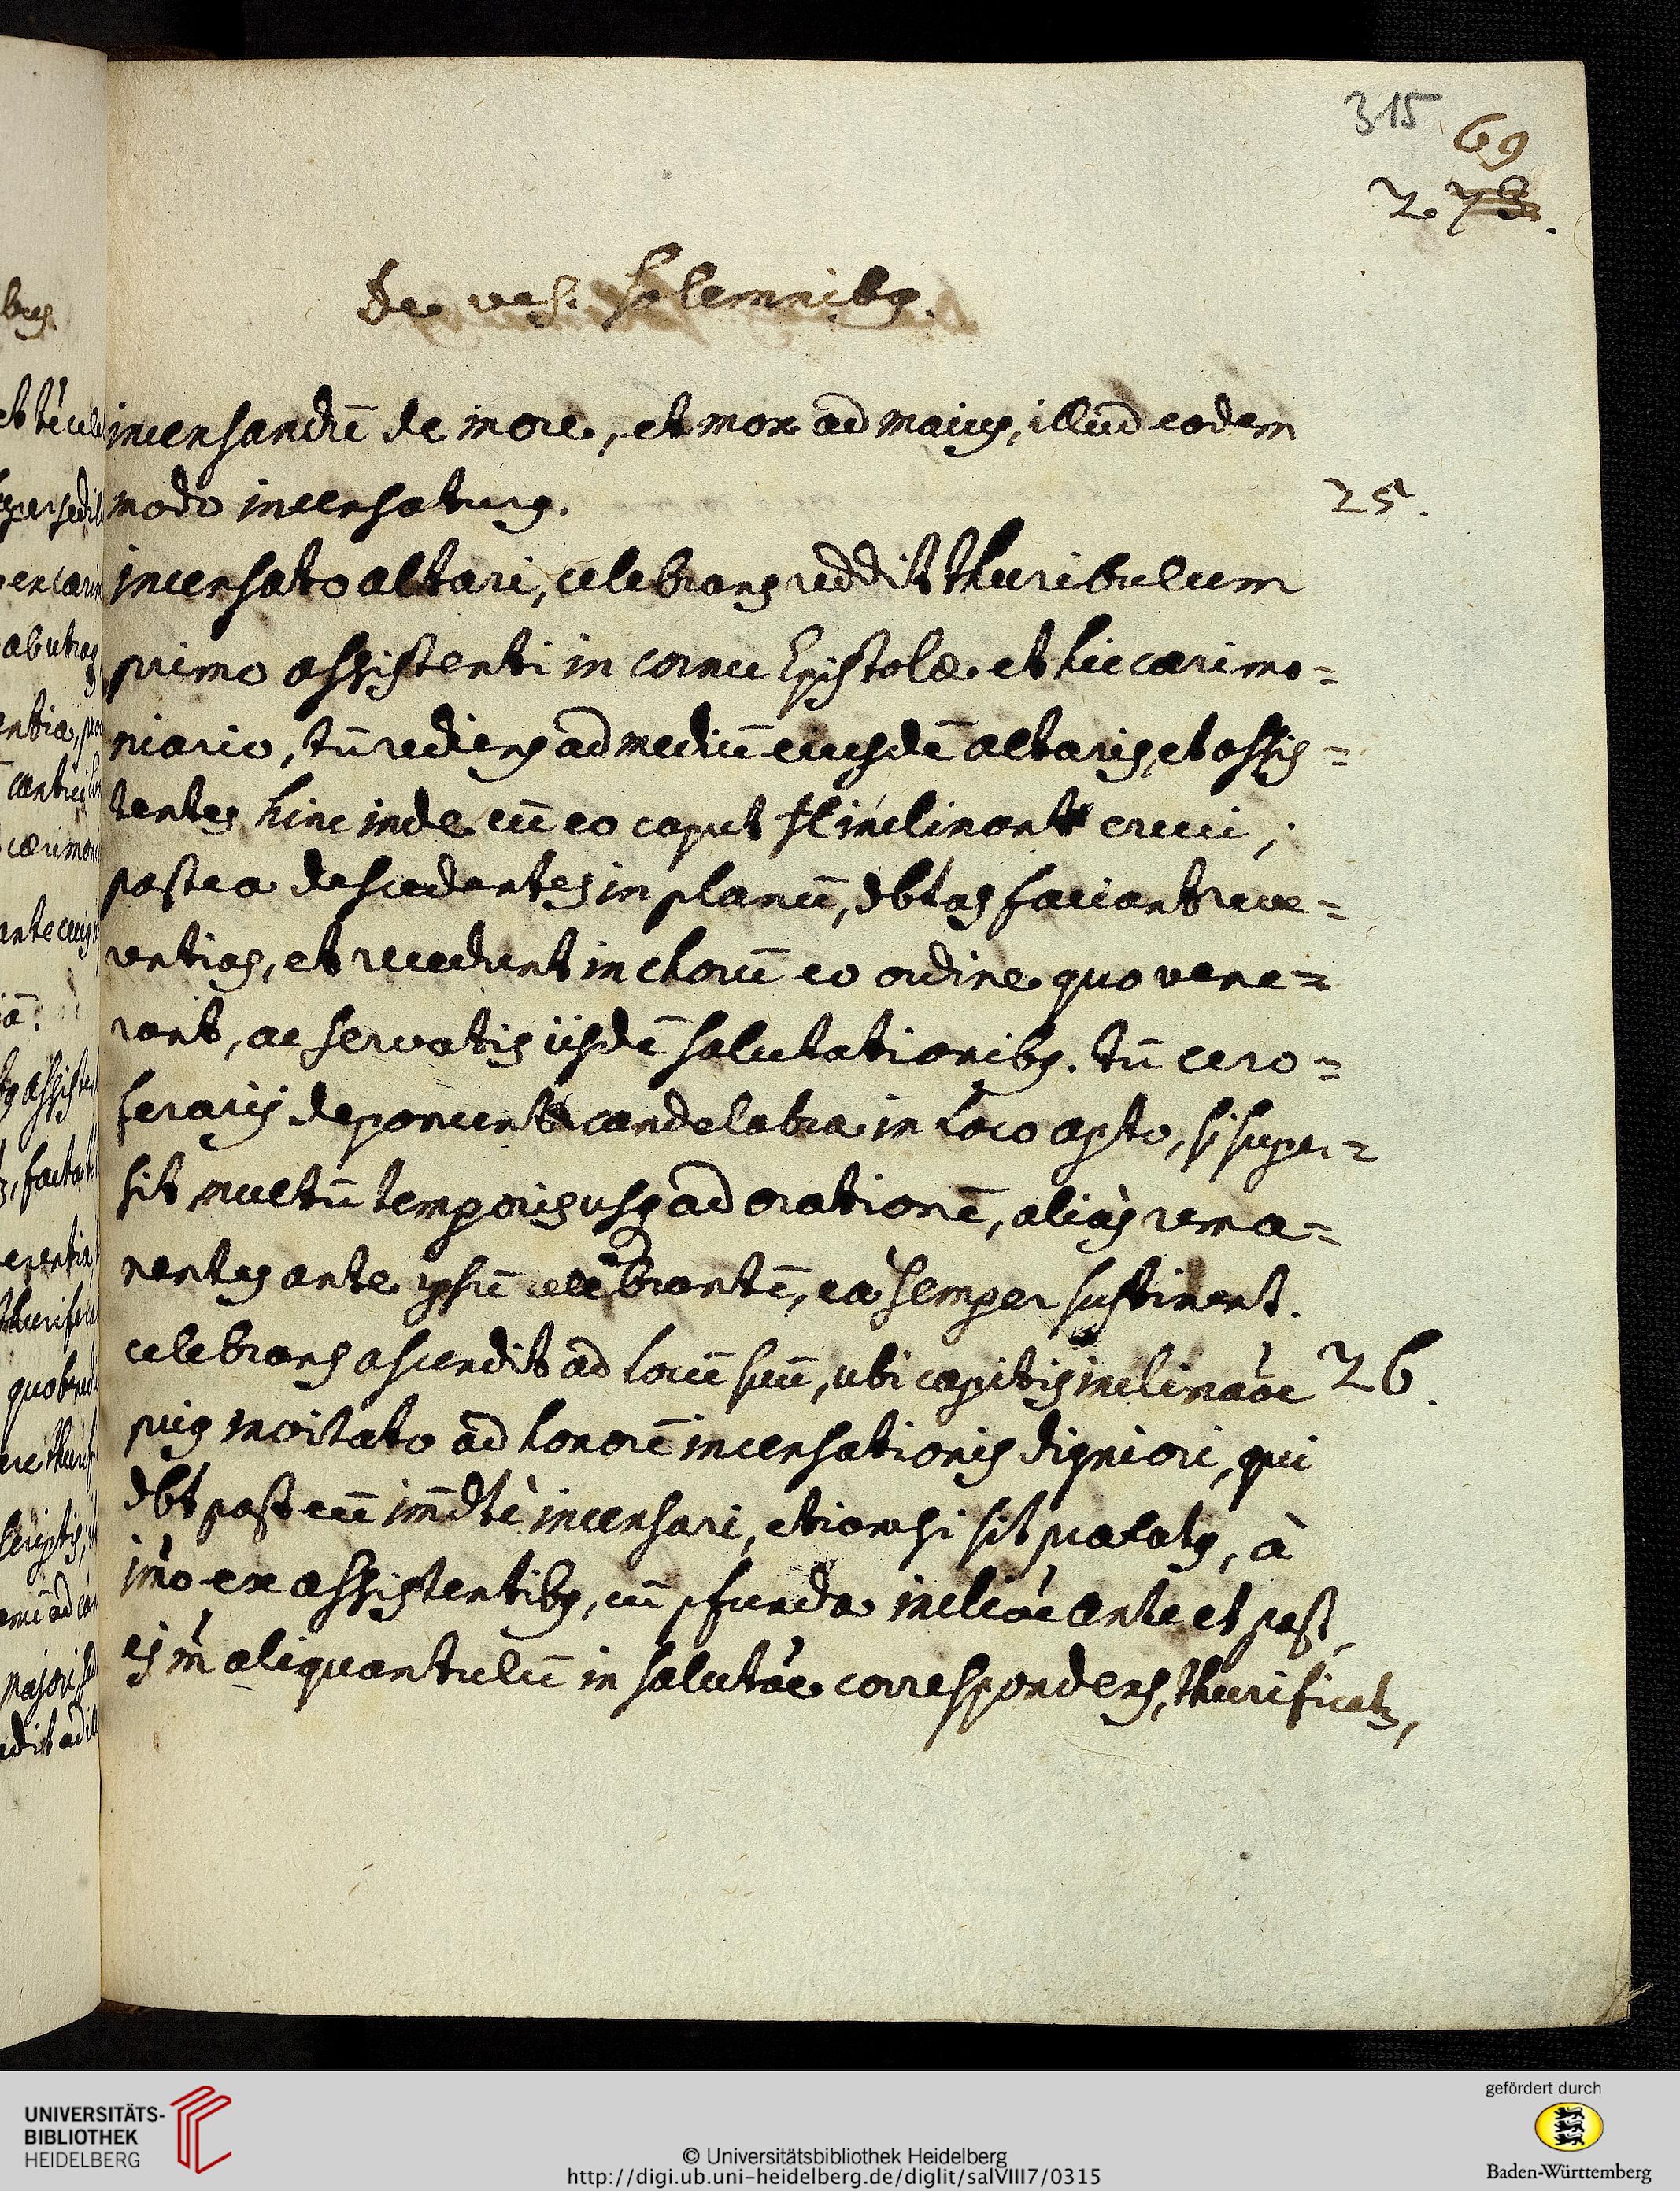 315
69
2. 73.
De vesp. solemnibq.
incensandũ de more, et mox ad maius, illud eodem
modo incensaturq.
25.
incensato altari, celebrans reddit thuribulum
primo assistenti in cornu Epistolæ et hic cærimo=
niario, tũ rediens ad mediũ eiusdẽ altaris, et assis=
tentes hinc inde cũ eo caput inclinant cruci;
postea descedentes in planũ, dbtas faciant reve=
rentias, et recedunt in chorũ eo ordine quo vene=
rant, ac servatis iisdẽ salutationibq. tũ cero=
ferarij deponunt candelabra in loco apto, si super=
sit multũ temporis usq ad orationẽ, aliàs rema=
nentes ante ipsũ celebrantẽ, ea semper sustinent.
celebrans ascendit ad locũ suũ, ubi capitis inclinaõe
26.
pius invitato ad honorẽ incensationis digniori, qui
dbt post eũ im̃dtè incensari, etiamsi sit prælatq, à
imo ex assistentibq, cũ pfunda incliõe ante et post,
ej m̃ aliquantulũ in salutãoe correspondens, thurificatz,
UNIVERSITÄTS-
BIBLIOTHEK
HEIDELBERG
© Universitätsbibliothek Heidelberg
http://digi.ub.uni-heidelberg.de/diglit/salVIII7/0315
gefördert durch
Baden-Württemberg